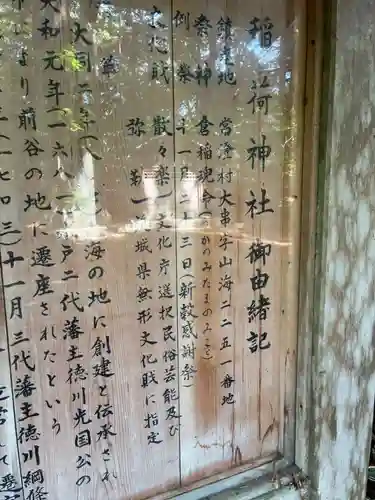 稲荷神社御由緒記
鎮座地 常澄村大串字山海二二五一番地
祭神 倉稲魂命(うかのみたまのみこと)
例祭 十一月二十三日(新穀感謝祭)
文化財 散々楽(文化庁選択民俗芸能及び
弥勒 茨城県無形文化財に指定
革
大同二年(八 海の地に創建と伝承され
天和元年(一六八一 戸二代藩主徳川光圀公の
により前谷の地に遷座されたという
(一七〇三)十一月三代藩主徳川綱條